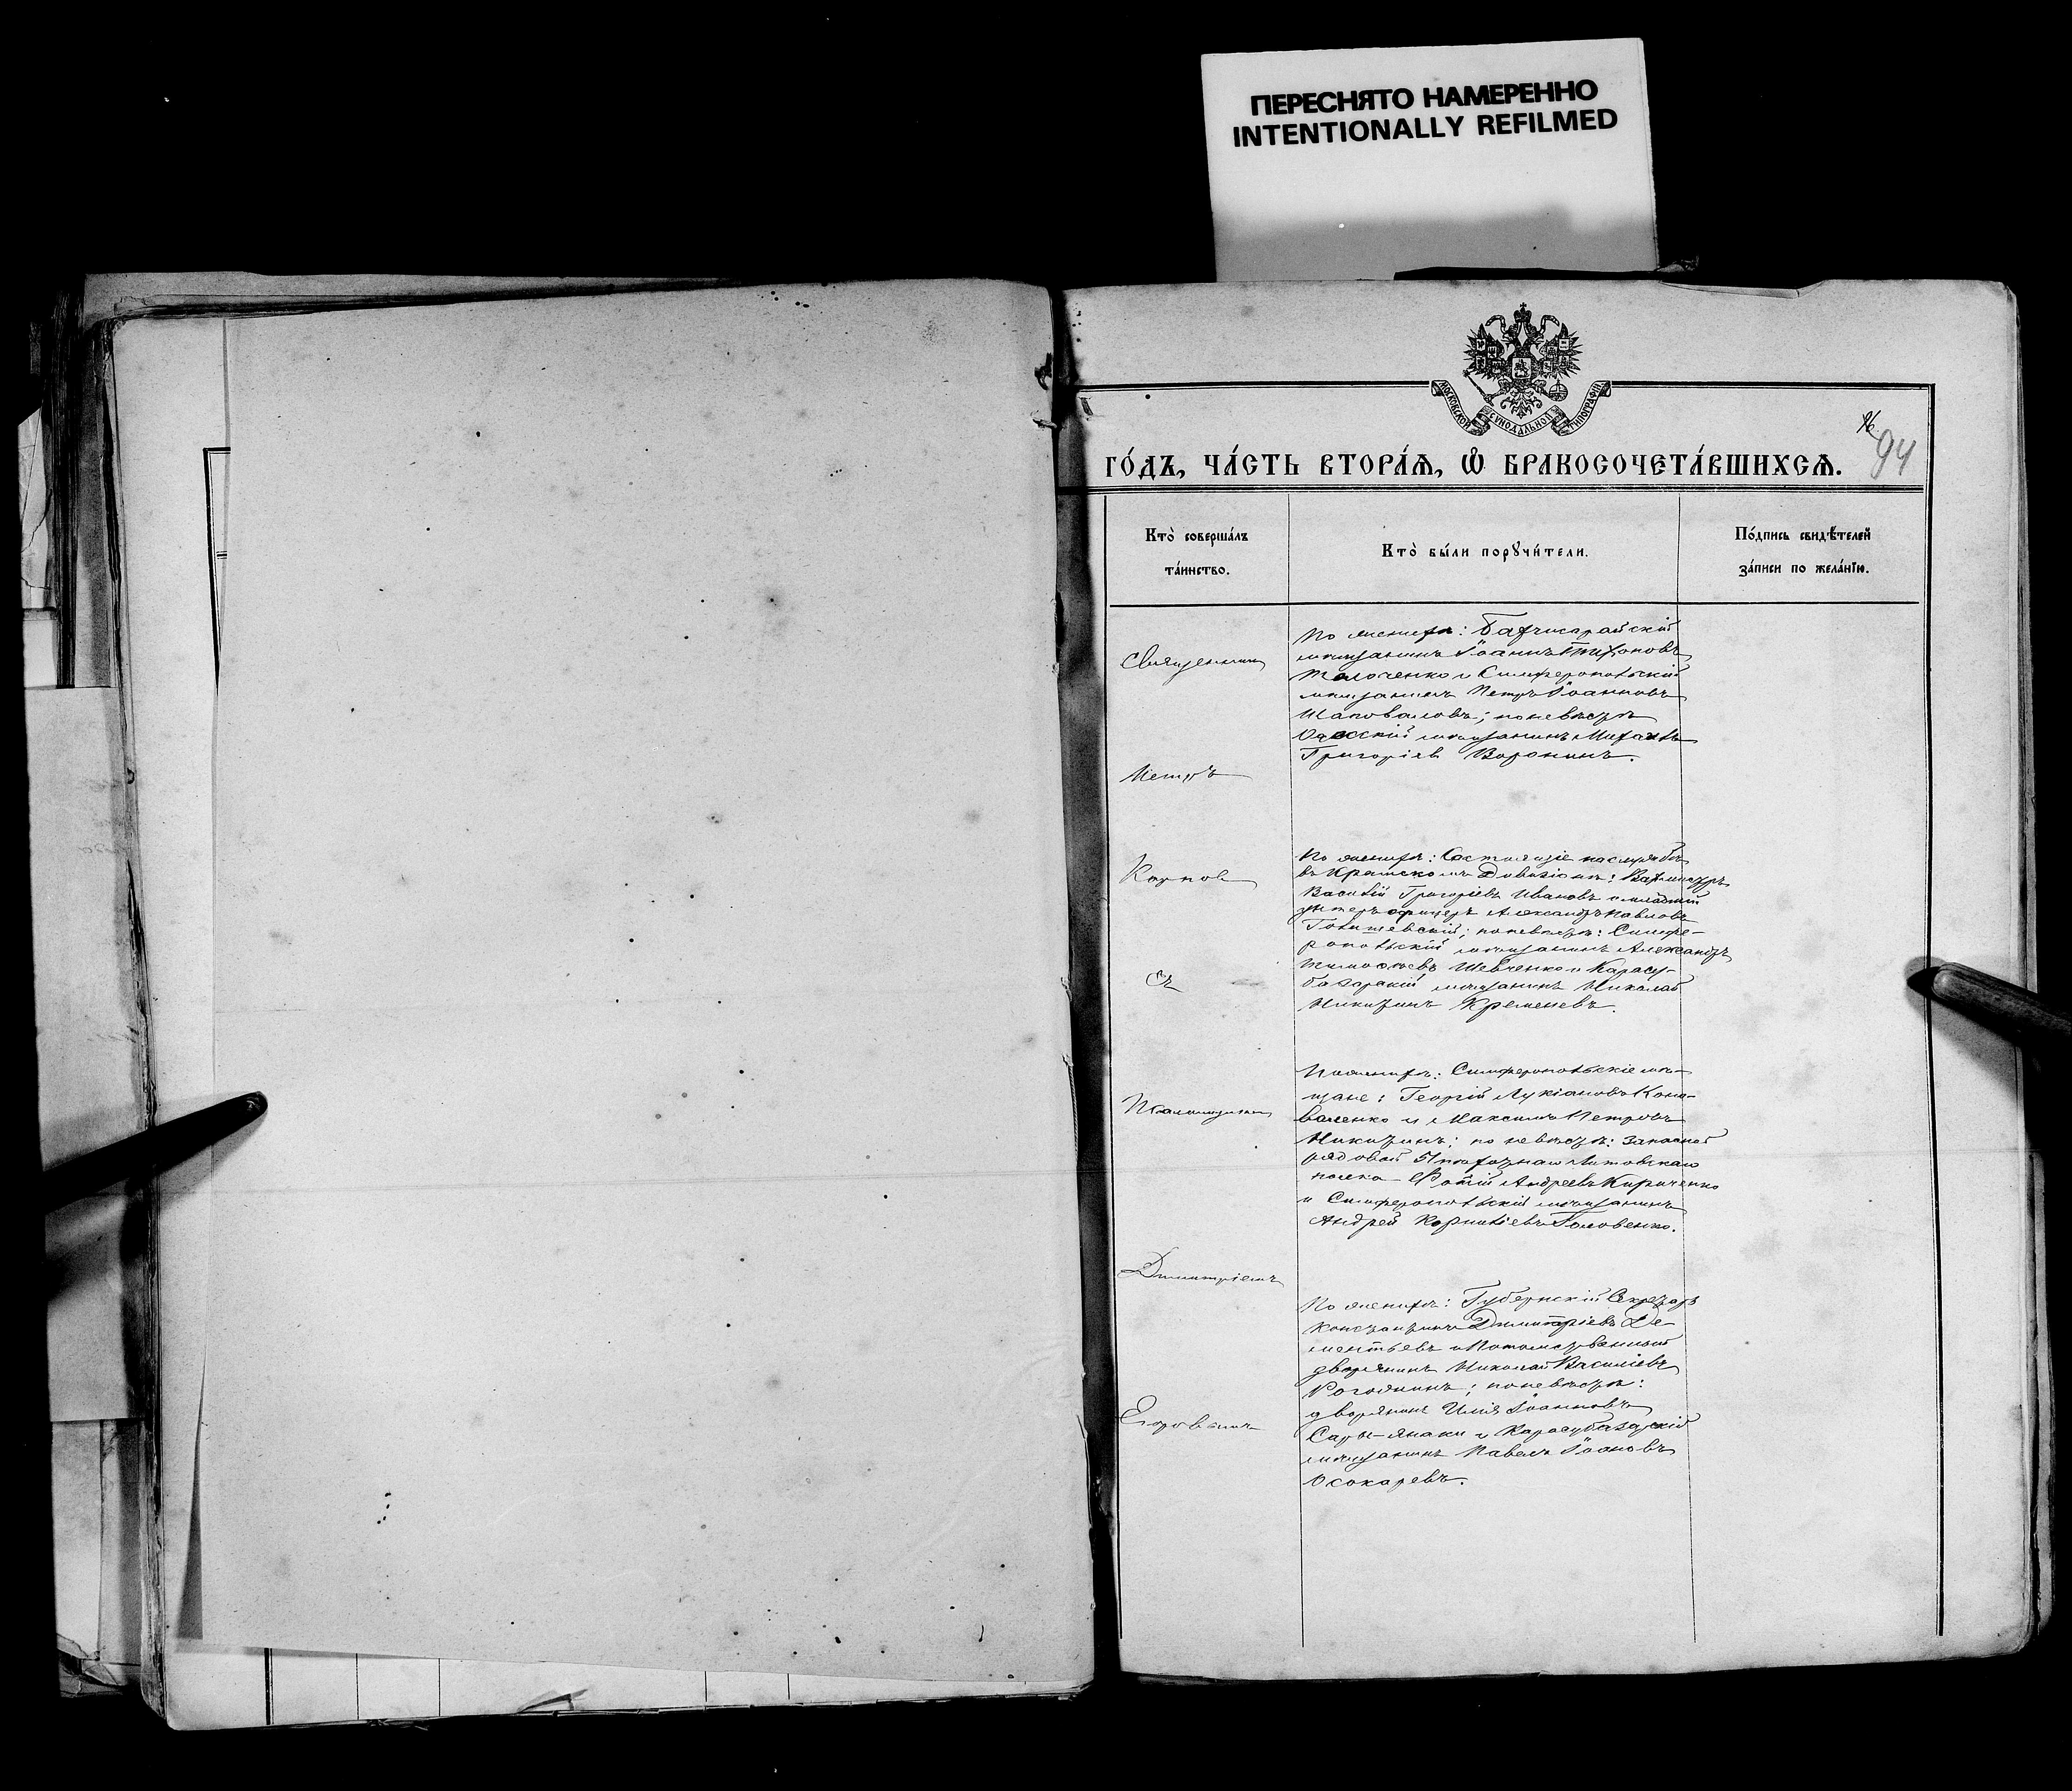 ПЕРЕСНЯТО НАМЕРЕННО
INTENTIONALLY REFILMED
МОСКОВСКОЙ СѴНОДАЛЬНОЙ ТИПОГРАФІИ
94
ГО́ДЪ, ЧА́СТЬ ВТОРА́Ѧ, Ѡ҆ БРАКОСОЧЕТА́ВШИХСѦ.
Кто̀ соверша́лъ
та́инство.
Кто̀ бы́ли порꙋчи́тели.
По́дпись свидѣ́телей
за́писи по жела́нїю.
Священникъ
Петръ
Карпов
съ
Псаломщикомъ
Димитріемъ
Егоровымъ
По женихѣ: Бахчисарайскій
мѣщанинъ Іоаннъ Тихоновъ
Толоченко и Симферопольскій
мѣщанинъ Петръ Іоанновъ
Шаповаловъ; по невѣстѣ
Одесскій мѣщанинъ Михаилъ
Григоріев Воронинъ.
По женихѣ: Состоящіе на службѣ
въ Крымскомъ Дивизіонѣ: Вахмистръ
Василій Григоріевъ Ивановъ и младшій
унтеръ офицеръ Александръ Павловъ
Голишевскій; по невѣстѣ: Симфе-
ропольскій мѣщанинъ Александръ
Тимофѣевъ Шевченко и Карасу-
базарскій мѣщанинъ Николай
Никитинъ Кременевъ.
По женихѣ: Симферопольскіе мѣ-
щане: Георгій Лукіановъ Коно-
валенко и Максимъ Петровъ
Никитинъ; по невѣстѣ: запасной
рядовой 51 пѣхотнаго Литовскаго
полка Фотій Андреевъ Кириченко
и Симферопольскій мѣщанинъ
Андрей Корниліевъ Головенко.
По женихѣ: Губернскій Секретарь
Константинъ Димитріевъ Де-
ментьевъ и Потомственный
дворянинъ Николай Василіевъ
Рогожинъ; по невѣстѣ:
дворянинъ Илія Іоанновъ
Сары-Янаки и Карасубазарскій
мѣщанинъ Павелъ Іоановъ
Осокаревъ.